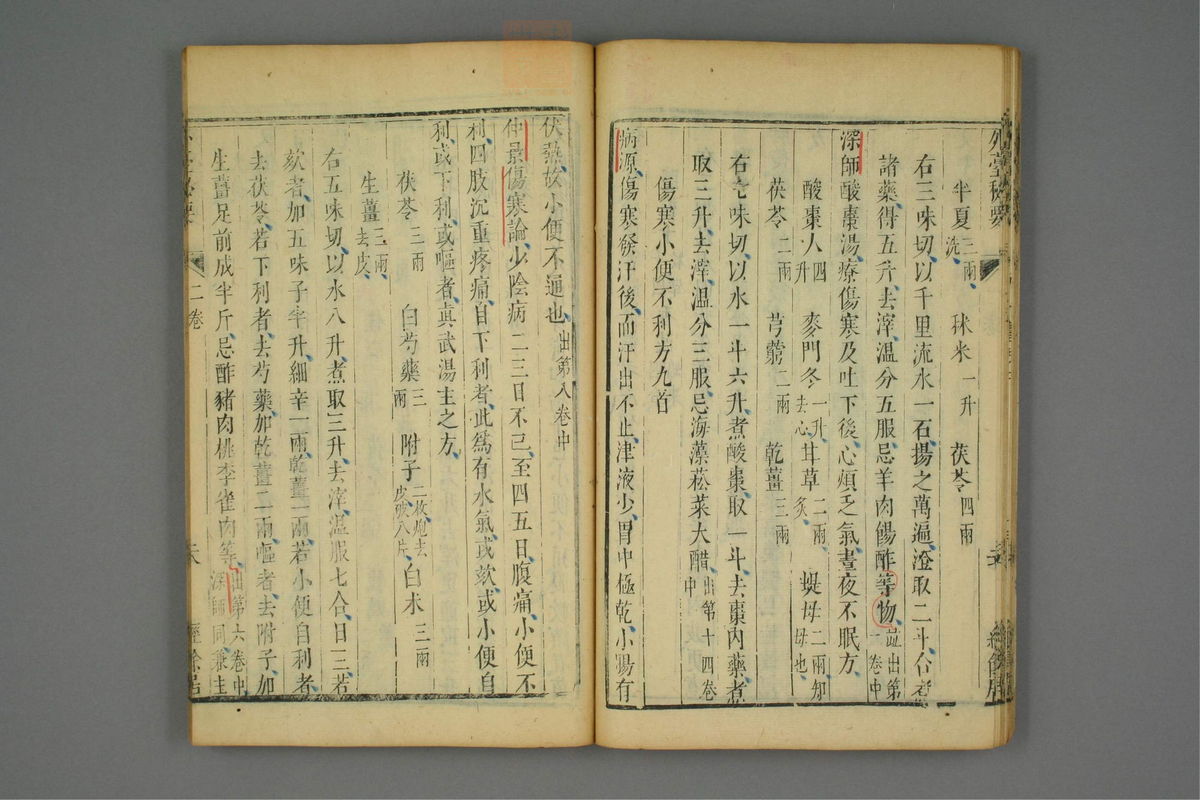 外臺秘要
半夏三兩洗 秫米一升 茯苓四兩
右三味切以千里流水一石揚之萬遍澄取二斗合煮
諸藥得五升去滓溫分五服忌羊肉餳酢等物並出第一卷中
深師酸棗湯療傷寒及吐下後心煩乏氣晝夜不眠方
酸棗人四升 麥門冬一升去心 甘草二兩炙 蝭母二兩知母也
茯苓二兩 芎藭二兩 乾薑三兩
右七味切以水一斗六升煮酸棗取一斗去棗內藥煮
取三升去滓溫分三服忌海藻菘菜大醋出第十四卷中
傷寒小便不利方九首
病源傷寒發汗後而汗出不止津液少胃中極乾小腸有
伏熱故小便不通也出第八卷中
仲景傷寒論少陰病二三日不已至四五日腹痛小便不
利四肢沉重疼痛自下利者此爲有水氣或欬或小便自
利或下利或嘔者真武湯主之方
茯苓三兩 白芍藥三兩 附子二枚炮去皮破八片 白朮三兩
生薑三兩去皮
右五味切以水八升煮取三升去滓溫服七合日三若
欬者加五味子半升細辛一兩乾薑一兩若小便自利者
去茯苓若下利者去芍藥加乾薑二兩嘔者去附子加
生薑足前成半斤忌酢豬肉桃李雀肉等出第六卷中深師同兼主
二卷
經餘居